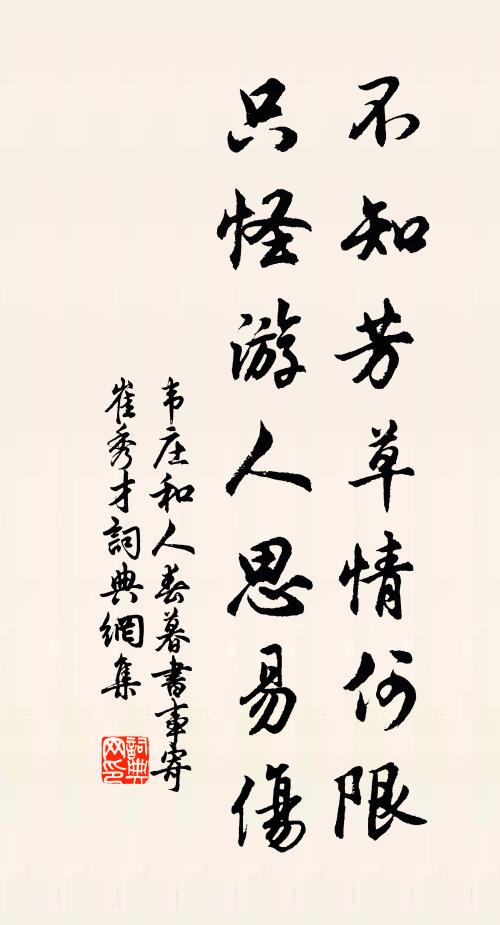 不知芳草情何限
只怪游人思易傷
韦庄和人春暮書事寄
崔秀才詞典網集
詞典
网印